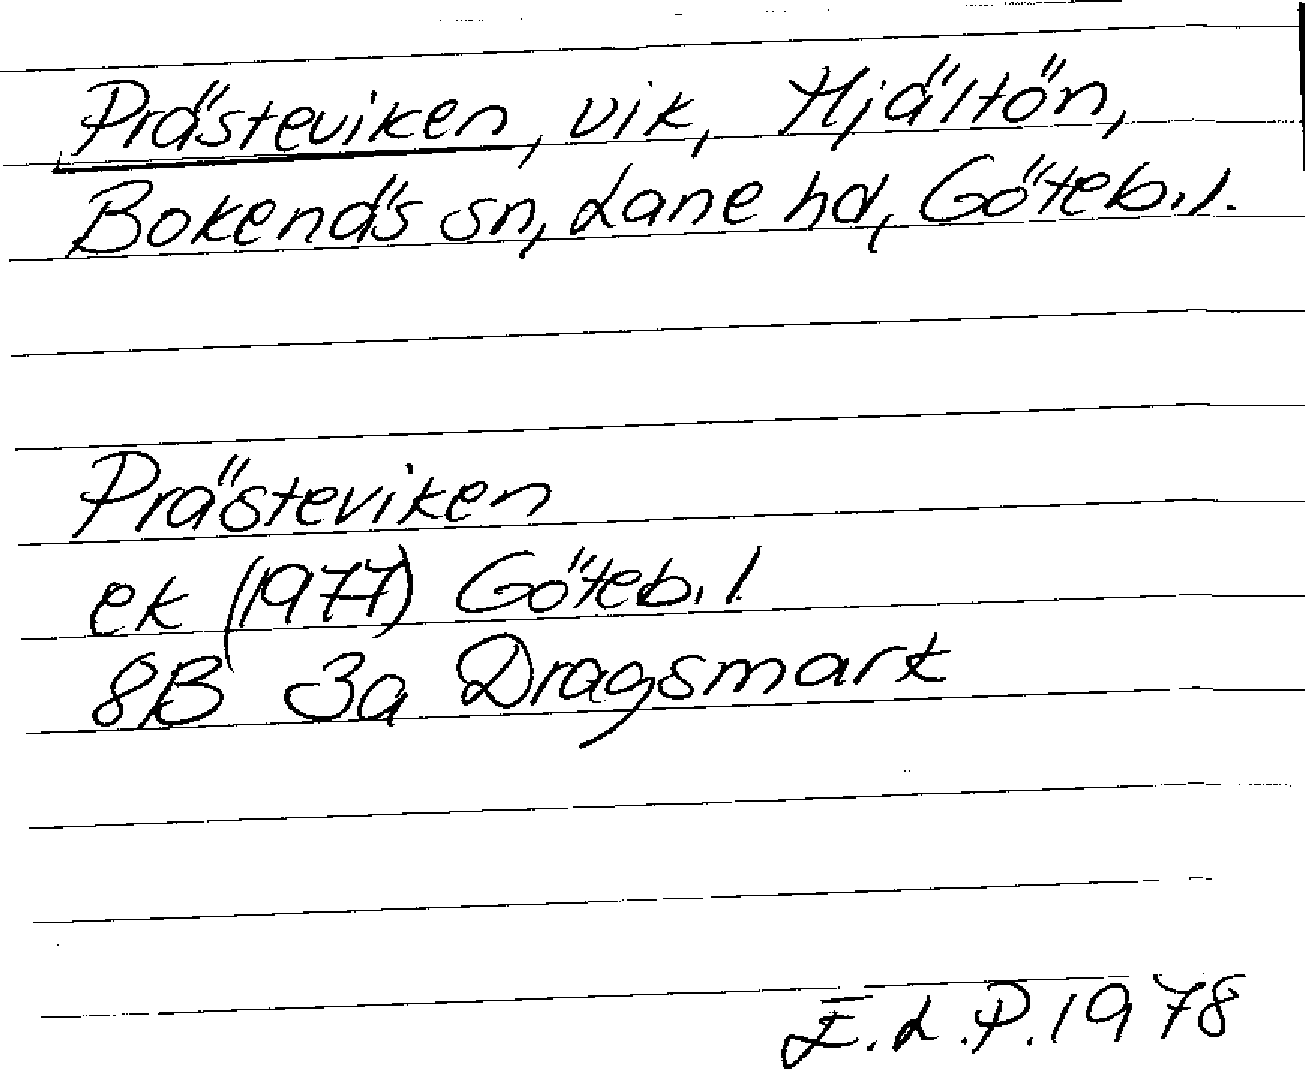 Prästeviken, vik, Hjältön,
Bokenäs sn, Lane hd, Göteb.l.
Prästeviken
ek (1977) Göteb.l
8B 3a Dragsmark
E.L.P.1978